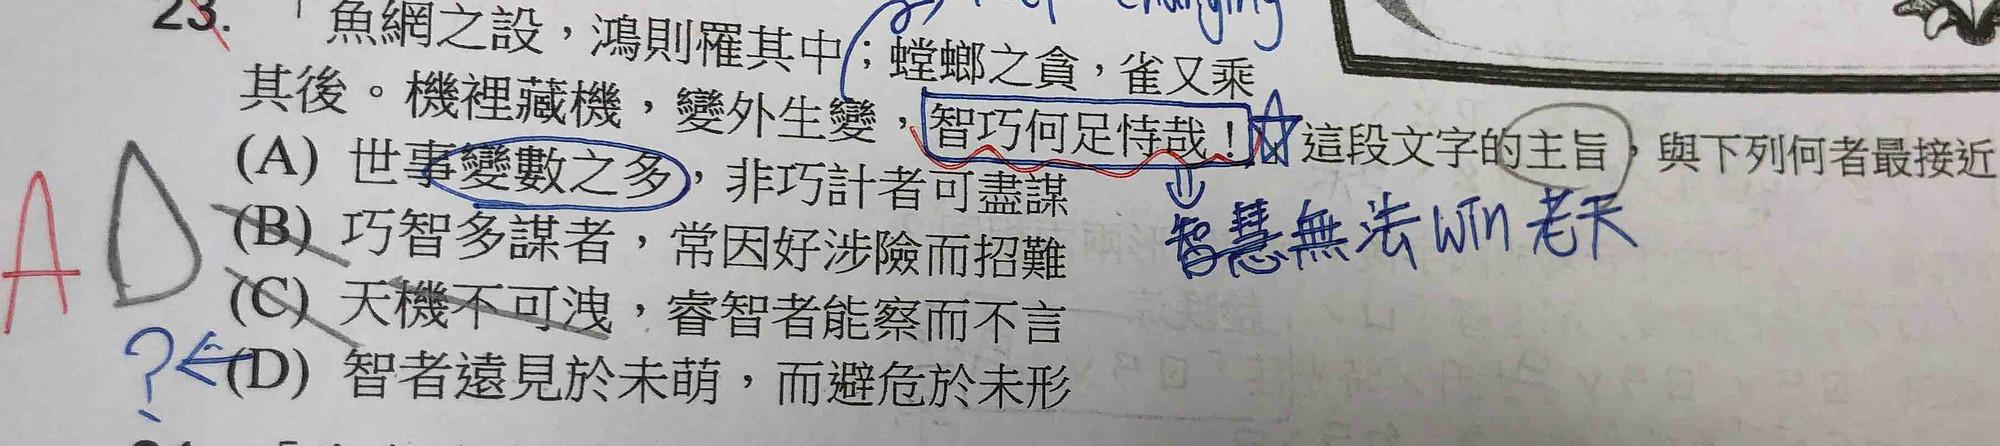 23. 「魚網之設，鴻則罹其中；螳螂之貪，雀又乘
其後。機裡藏機，變外生變，智巧何足恃哉！」這段文字的主旨，與下列何者最接近
(A) 世事變數之多，非巧計者可盡謀
(B) 巧智多謀者，常因好涉險而招難
(C) 天機不可洩，睿智者能察而不言
(D) 智者遠見於未萌，而避危於未形
changing
智慧無法win老天
A
D
?